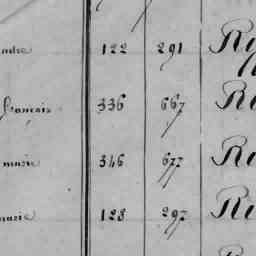 andre 122 291 Ri
françois 336 667 Ri
marie 346 677 Ri
marie 128 297 Ri